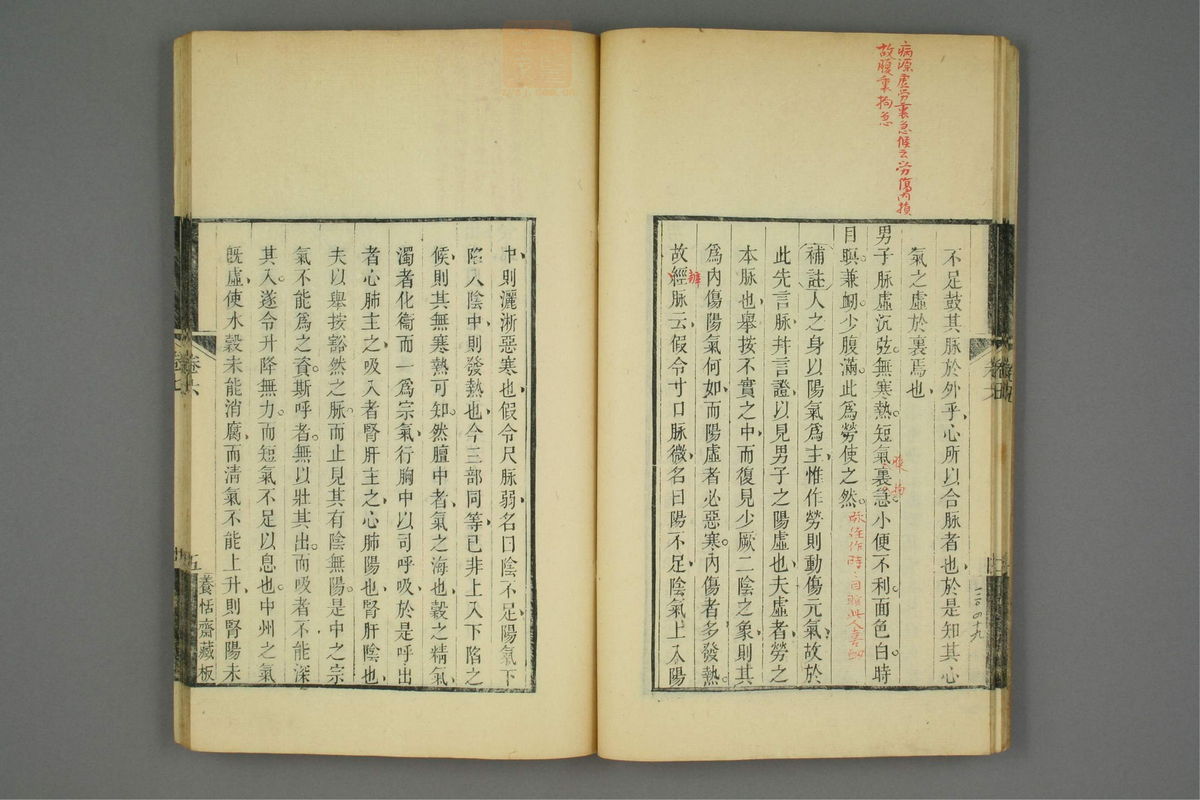 病源虛勞裏急候云勞傷內損
故腹裏拘急
不足鼓其脉於外乎心所以合脉者也於是知其心
氣之虛於裏焉也
男子脉虛沉弦無寒熱短氣裏急小便不利面色白時
目瞑兼衂少腹滿此爲勞使之然
腹拘
補註人之身以陽氣爲主惟作勞則動傷元氣故於
此先言脉并言證以見男子之陽虛也夫虛者勞之
本脉也舉按不實之中而復見少厥二陰之象則其
爲內傷陽氣何如而陽虛者必惡寒內傷者多發熱
故經脉云假令寸口脉微名曰陽不足陰氣上入陽
辨
中則灑淅惡寒也假令尺脉弱名曰陰不足陽氣下
陷入陰中則發熱也今三部同等已非上入下陷之
候則其無寒熱可知然膻中者氣之海也穀之精氣
濁者化衞而一爲宗氣行胸中以司呼吸於是呼出
者心肺主之吸入者腎肝主之心肺陽也腎肝陰也
夫以舉按豁然之脉而止見其有陰無陽是中之宗
氣不能爲之資斯呼者無以壯其出而吸者不能深
其入遂令升降無力而短氣不足以息也中州之氣
旣虛使水穀未能消腐而清氣不能上升則腎陽未
卷六
五
養恬齋藏板